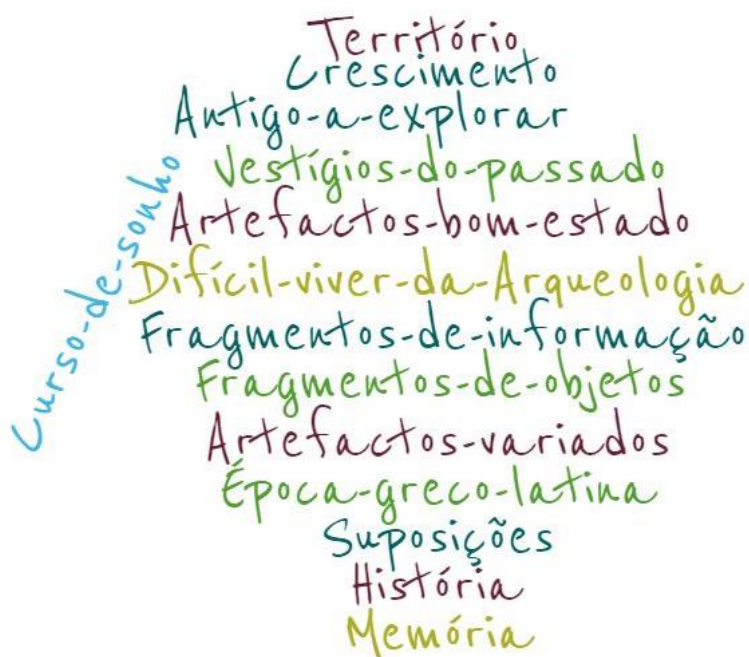 Território
Crescimento
Antigo-a-explorar
Vestígios-do-passado
Artefactos-bom-estado
Curso-de-sonho
Difícil-viver-da-Arqueologia
Fragmentos-de-informação
Fragmentos-de-objetos
Artefactos-variados
Época-greco-latina
Suposições
História
Memória